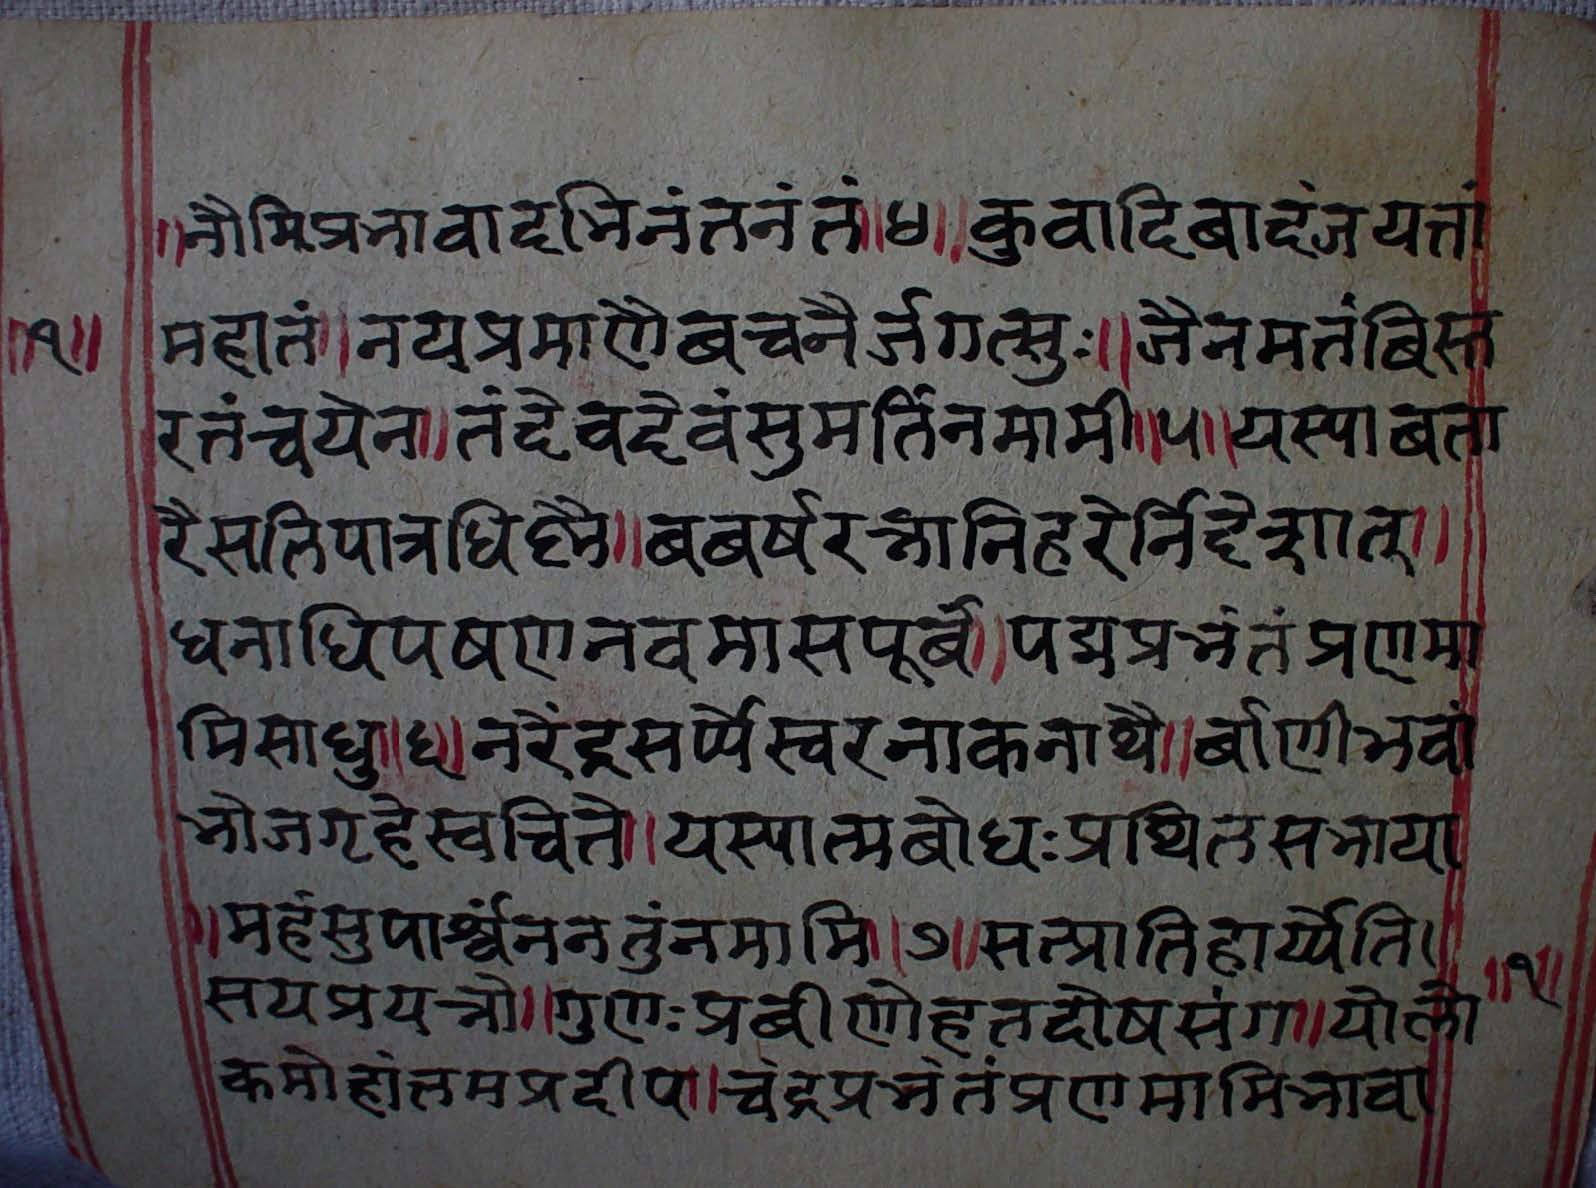 ॥नौमिप्रभावादभिनंतनंतं॥४॥कुवादिबादंजयत्तां
॥१॥ महातं॥नयप्रमाणैबचनैर्जगत्सुः॥जैनमत्तंबिस्त
रत्तंच्चयेन॥तंद्देवदेवंसुमर्तिंनमामी॥५॥यस्पाबता
रैसलिपात्रधिह्नै॥बबर्षरत्नानिहरेर्निद्देशात्॥
धनाधिपषणनवमासपूर्बे॥पद्मप्रभंतंप्रणमा
मिसाधु॥६॥नरेंद्रसर्प्पेस्वरनाकनाथै॥र्बाणीभवां
भोजगृहेस्वचित्तै॥यस्पात्मबोधःप्रथितसभाया
॥महंसुपार्श्वंननतुंनमामि॥७॥सत्प्रातिहार्य्येति।
सयप्रयत्नौ॥गुणःप्रबीणोहतदोषसंग॥योलो ॥१॥
कमोहांतमप्रदीप॥चंद्रप्रभंतंप्रणमामिभावा